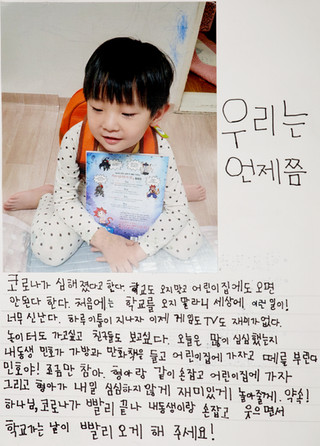 우리는
언제쯤
코로나가 심해졌다고 한다. 학교도 오지말고 어린이집에도 오면
안된다 한다. 처음에는 학교를 오지 말라니 세상에 이런 일이!
너무 신난다. 하루 이틀이 지나자 이제 게임도 TV도 재미가 없다.
놀이터도 가고싶고 친구들도 보고싶다. 오늘은 많이 심심했는지
내동생 민호가 가방과 만화책을 들고 어린이집에 가자고 떼를 부린다
민호야! 조금만 참아. 형아랑 같이 손잡고 어린이집에 가자
그리고 형아가 내일 심심하지 않게 재미있게 놀아줄게. 약속!
하나님, 코로나가 빨리 끝나 내동생이랑 손잡고 웃으면서
학교가는 날이 빨리 오게 해 주세요!